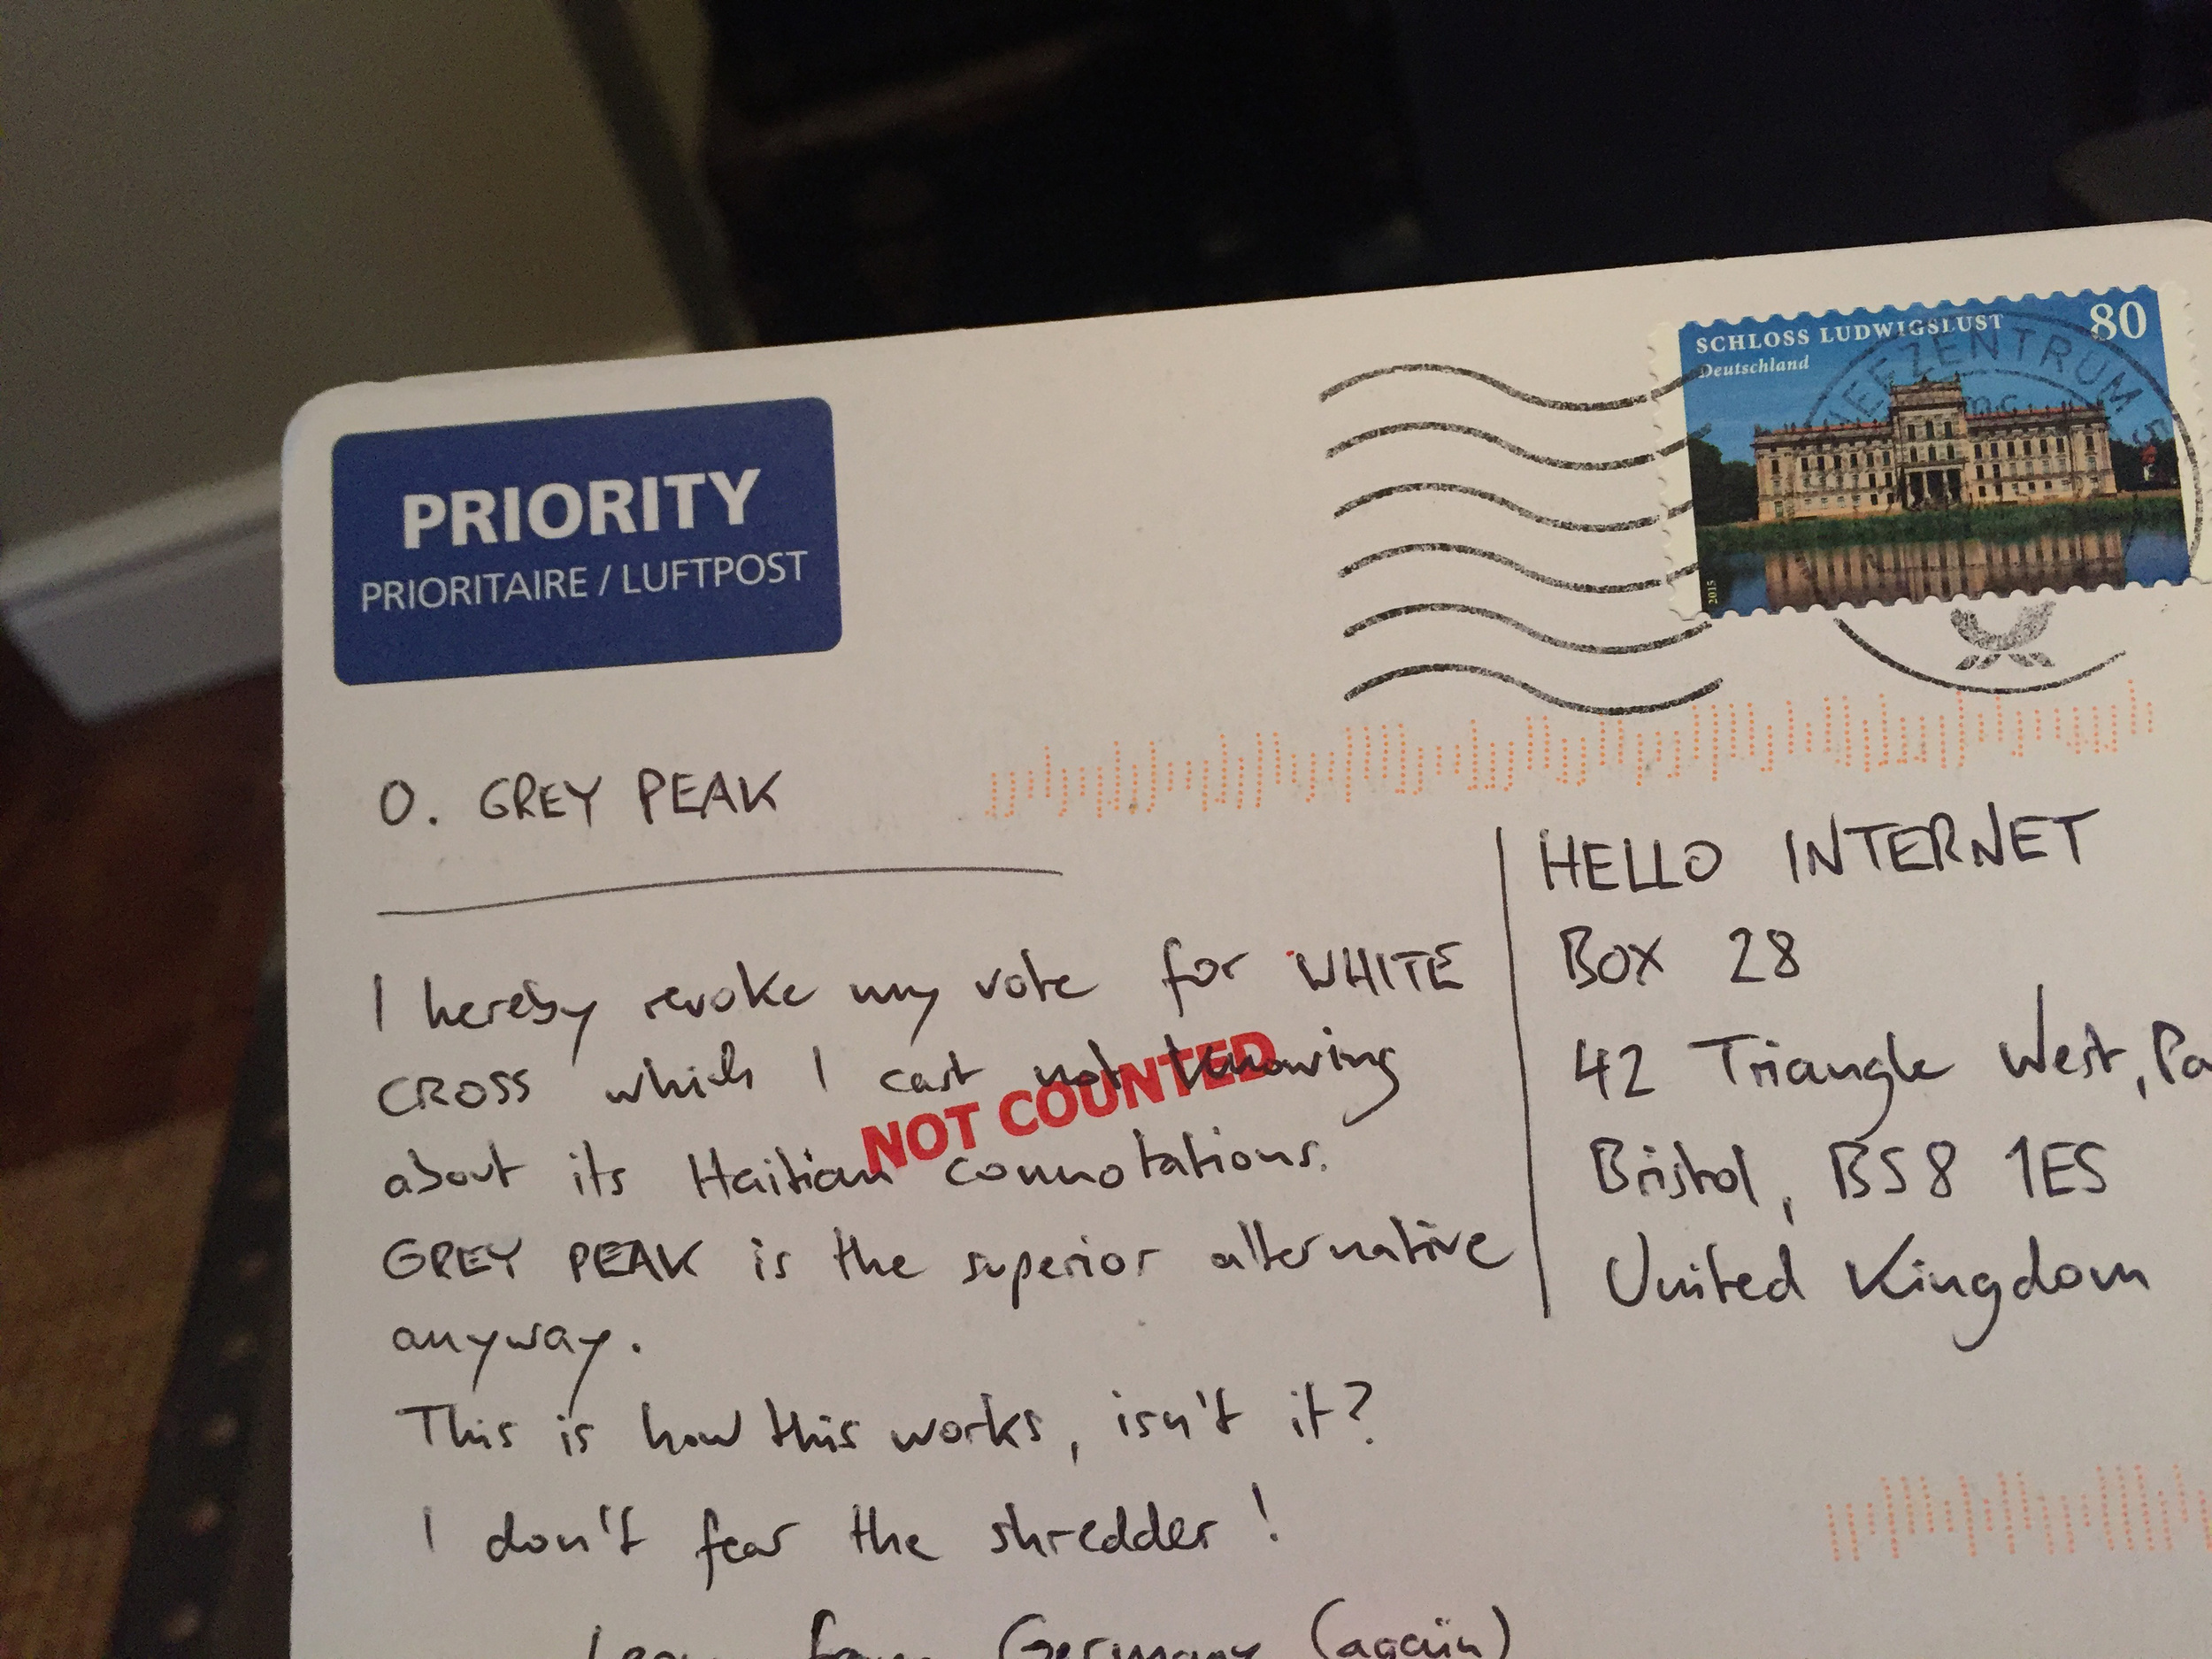 PRIORITY
PRIORITAIRE / LUFTPOST
SCHLOSS LUDWIGSLUST
80
Deutschland
2015
0. GREY PEAK
I hereby revoke my vote for WHITE
CROSS which I cast not knowing
about its Haitian connotations.
GREY PEAK is the superior alternative
anyway.
This is how this works, isn't it?
I don't fear the shredder!
from Germany (again)
NOT COUNTED
HELLO INTERNET
BOX 28
42 Triangle West, Pa
Bristol, BS8 1ES
United Kingdom